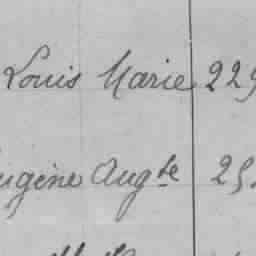 Louis Marie 229
Eugène Augte 25